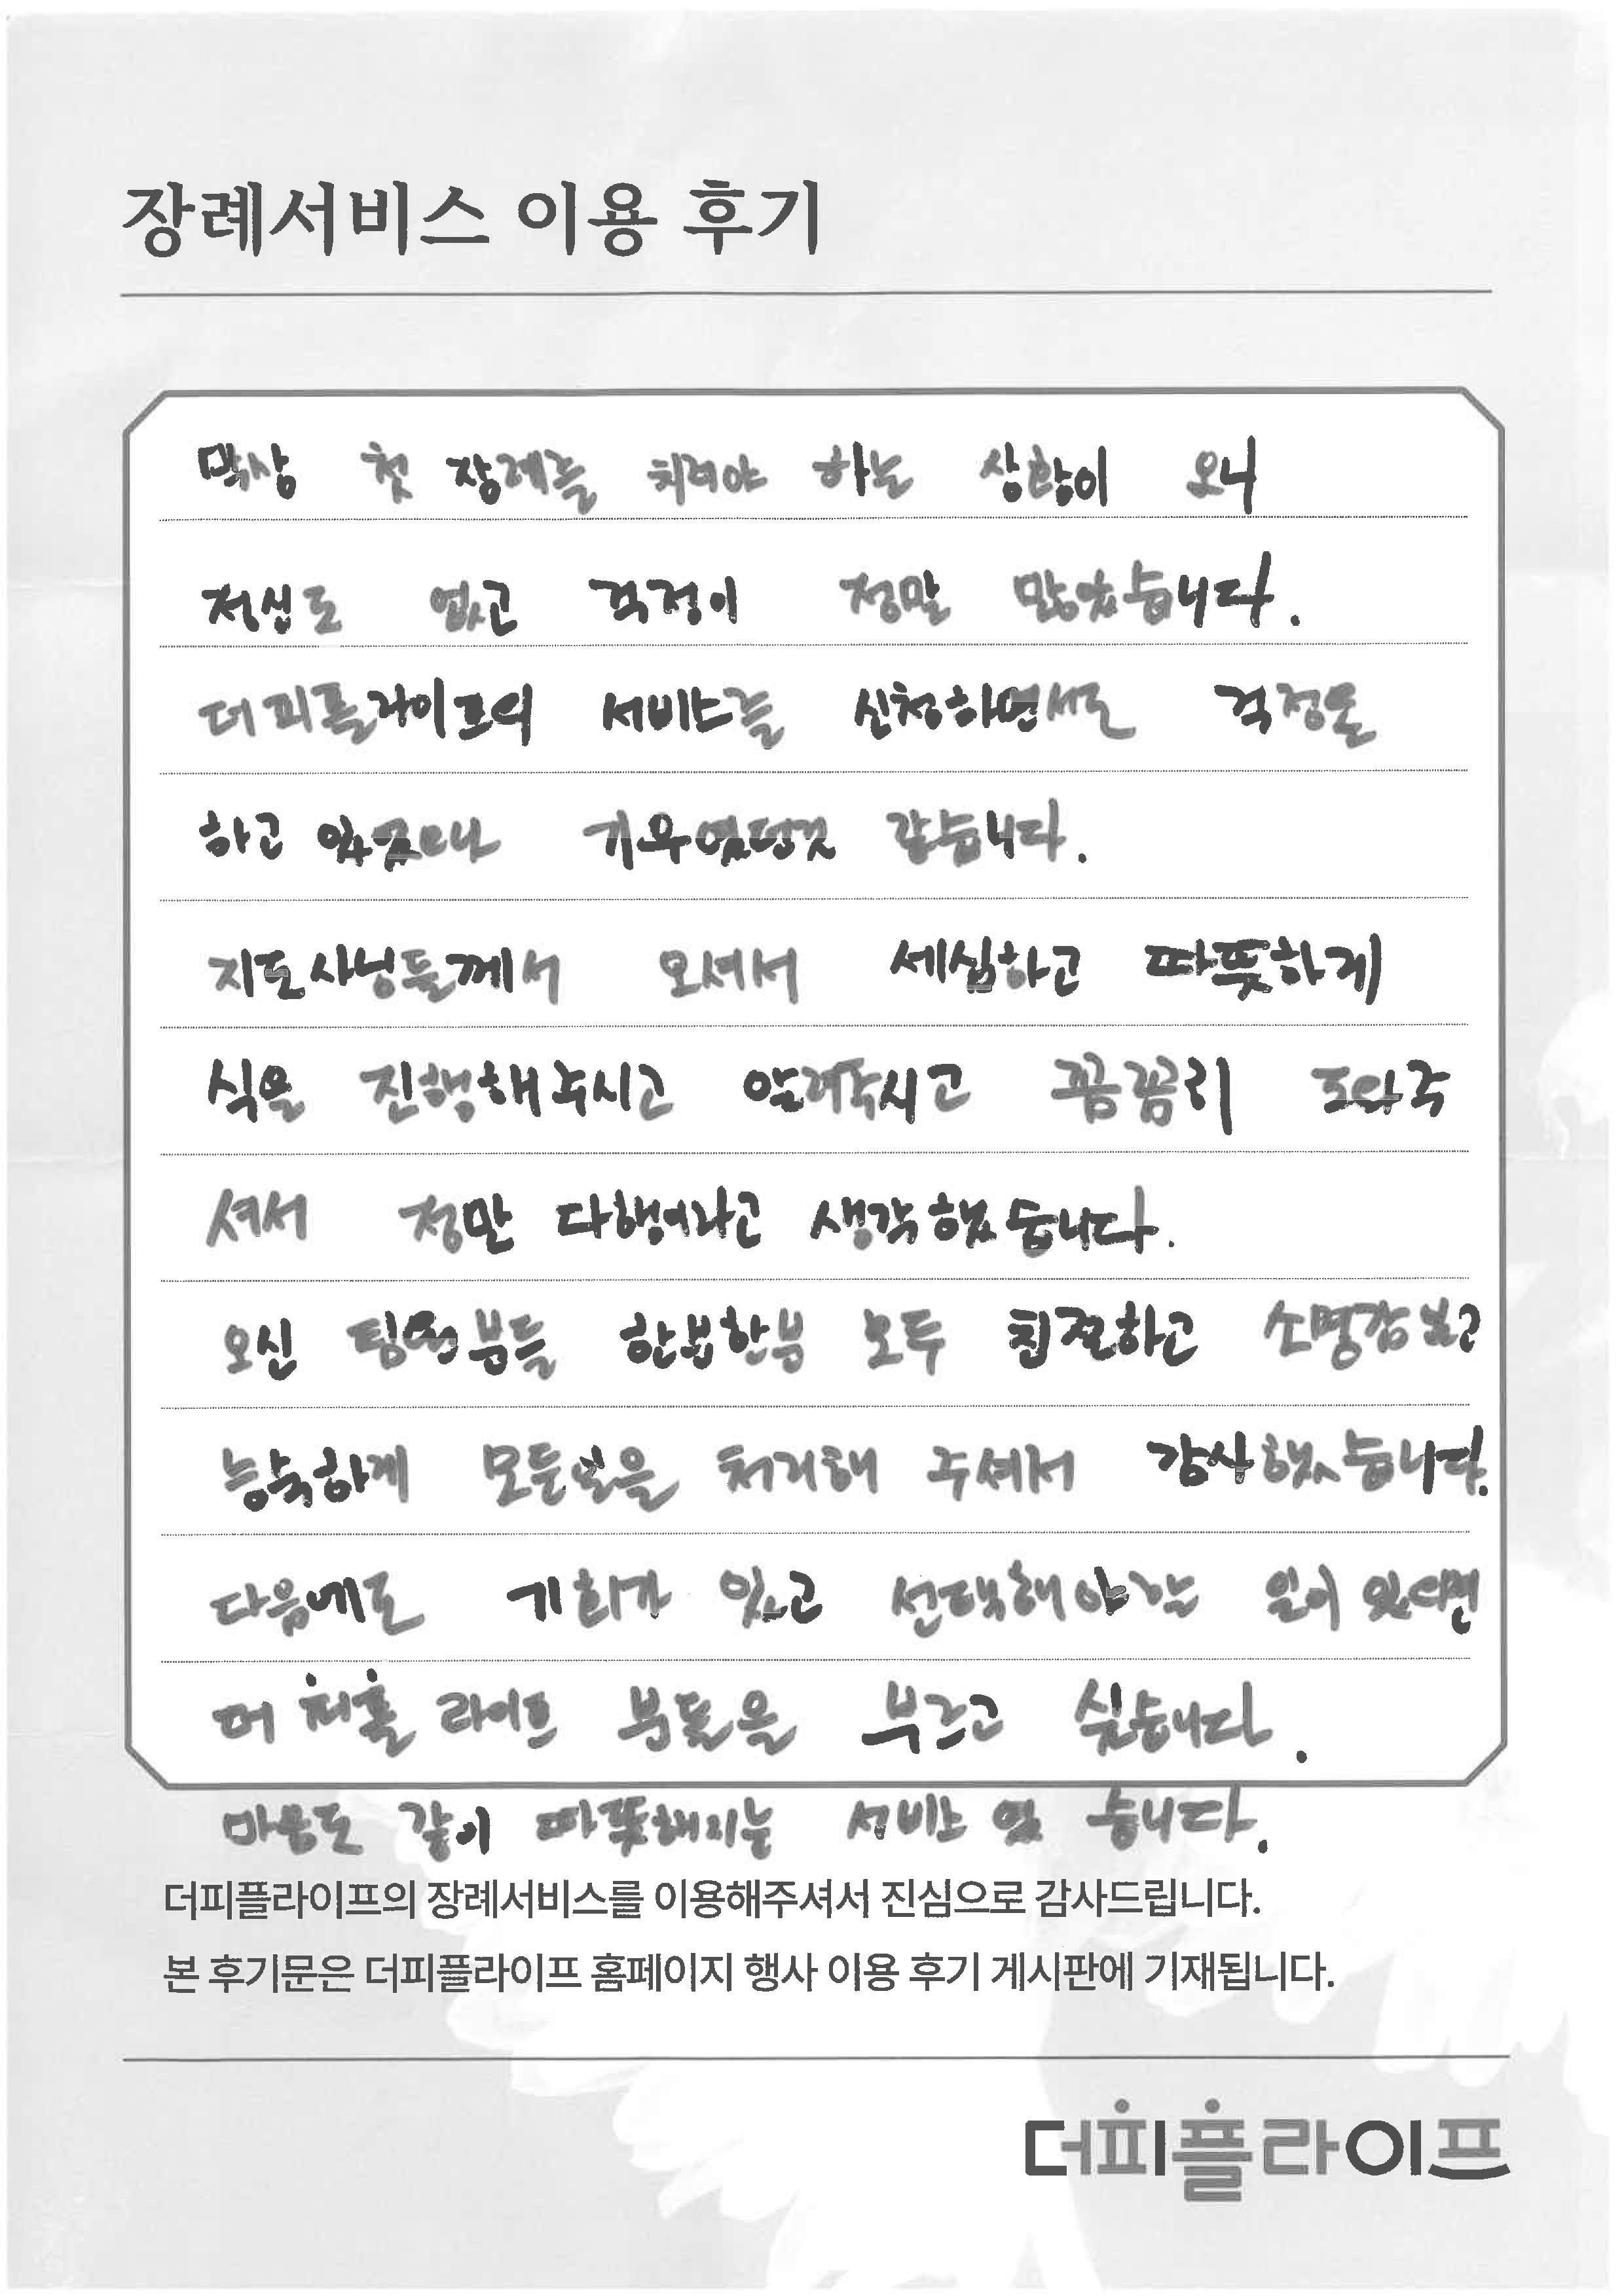 장례서비스 이용 후기
막상 첫 장례를 치러야 하는 상황이 오니
정신도 없고 걱정이 정말 많았습니다.
더피플라이프의 서비스를 신청하면서도 걱정을
하고 있었으나 기우였던것 같습니다.
지도사님들께서 오셔서 세심하고 따뜻하게
식을 진행해주시고 알려주시고 꼼꼼히 도와주
셔서 정말 다행이라고 생각했습니다.
오신 팀원분들 한분한분 모두 친절하고 소명감 보고
능숙하게 모든일을 처리해 주셔서 감사했습니다.
다음에도 기회가 있고 선택해야하는 일이 있다면
더피플 라이프 분들을 부르고 싶습니다.
마음도 같이 따뜻해지는 서비스 였습니다.
더피플라이프의 장례서비스를 이용해주셔서 진심으로 감사드립니다.
본 후기문은 더피플라이프 홈페이지 행사 이용 후기 게시판에 기재됩니다.
더피플라이프